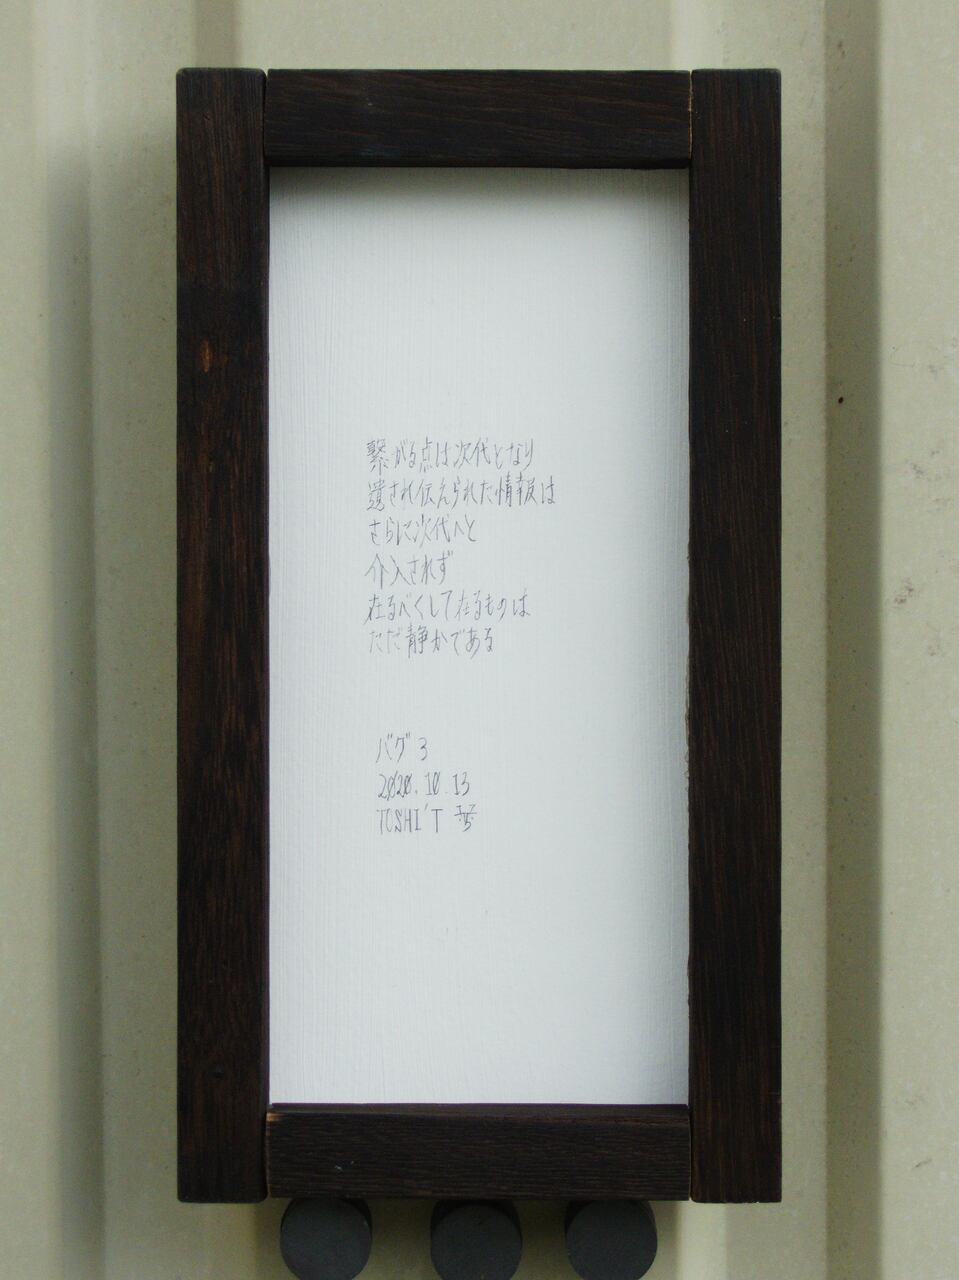 繋がる点は次代となり
遺され伝えられた情報は
さらに次代へと
介入されず
在るべくして在るものは
ただ静かである
バグ3
2020.10.13
TOSHI'T